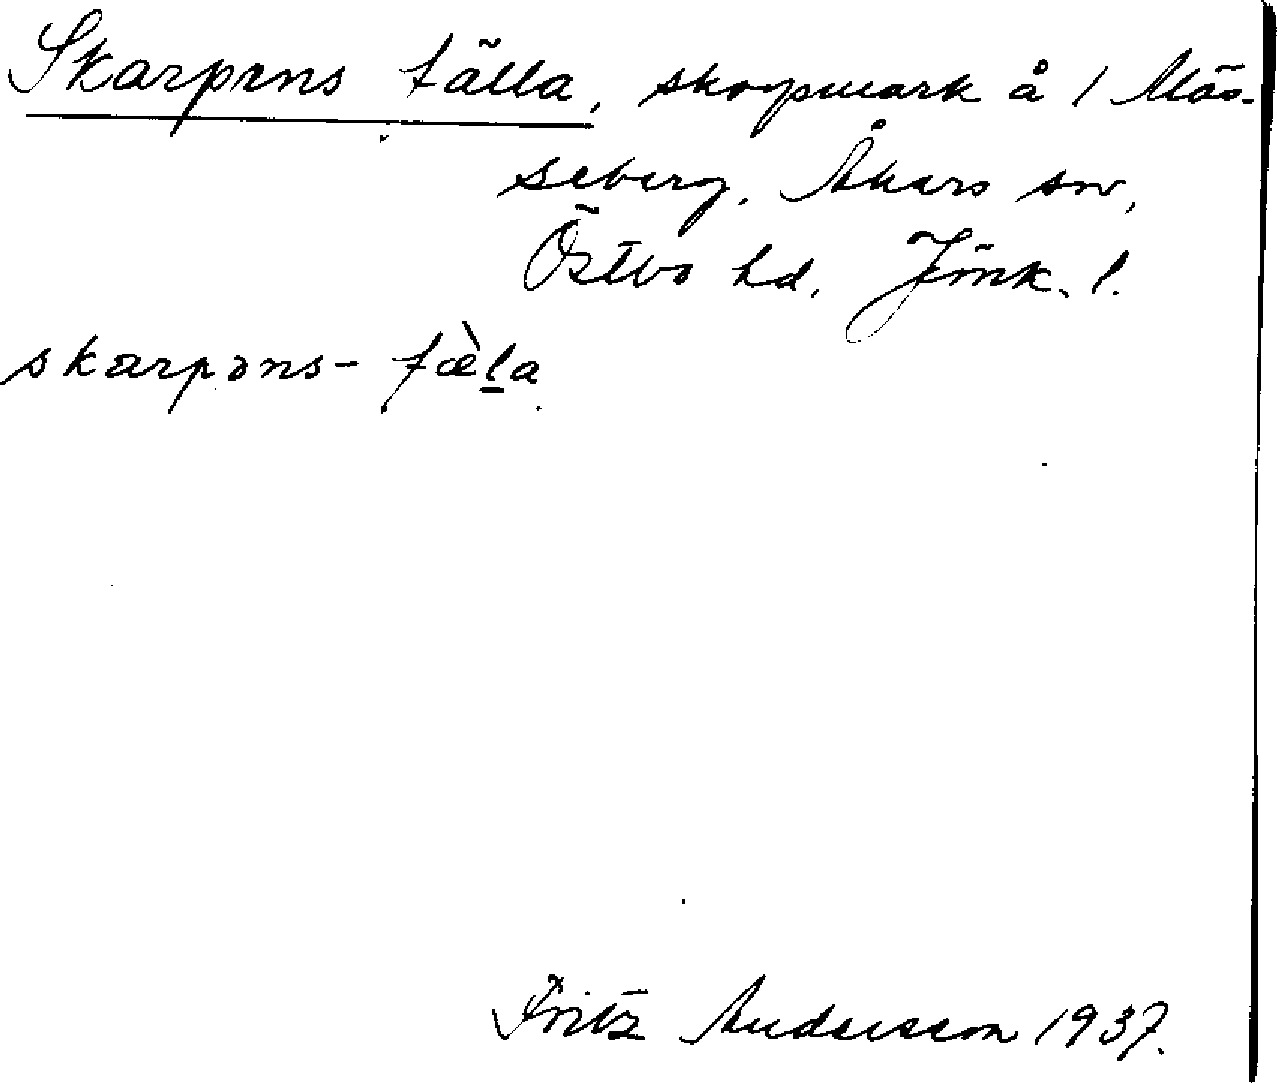 Skarpens fälla, skogsmark å 1 Mös-
seberg, Åkers sn,
Östbo hd, Jönk. l.
skarpəns- fæ̀l̲a
Fritz Andersson 1937.